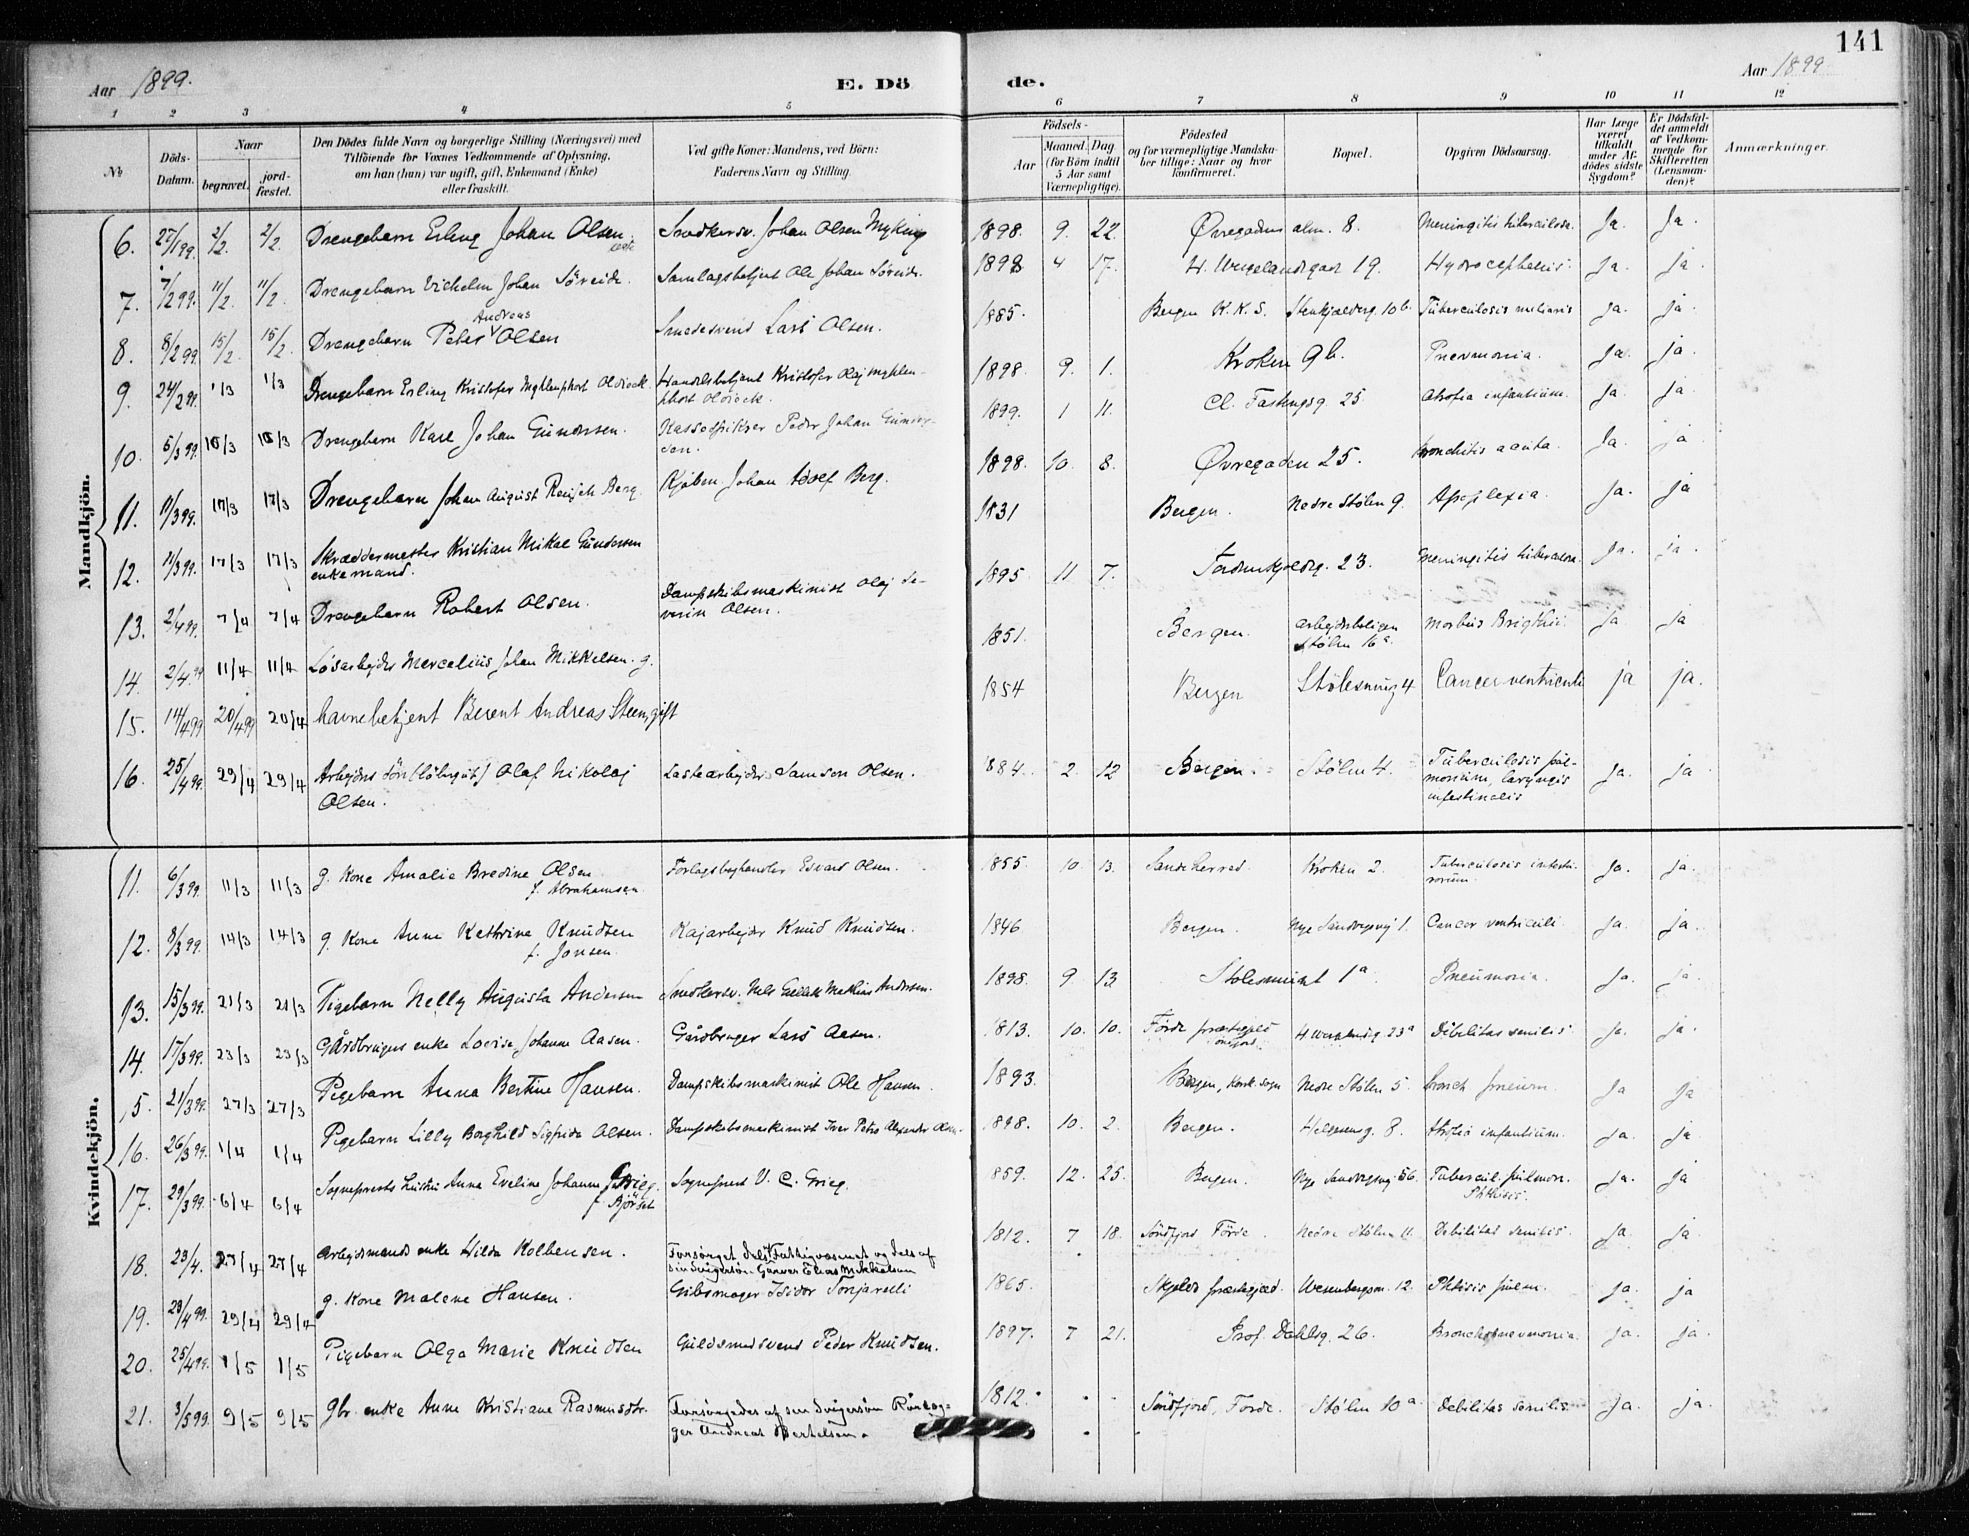 141
Aar 1899.
E. Dö
de.
Aar 1899
1 2 3 4 5 6 7 8 9 10 11 12
№
Döds-Datum.
Naar
begravet.
jord-fæstet.
Den Dödes fulde Navn og borgerlige Stilling (Næringsvei) med
Tilföiende for Voxnes Vedkommende af Oplysning,
om han (hun) var ugift, gift, Enkemand (Enke)
eller fraskilt.
Ved gifte Koner: Mandens, ved Börn:
Faderens Navn og Stilling.
Födsels-
Aar
Maaned. Dag
(for Börn indtil
5 Aar samt
Værnepligtige).
Födested
og for værnepligtige Mandska-
ber tillige: Naar og hvor
konfirmeret.
Bopæl.
Opgiven Dödsaarsag.
Har Læge
været
tilkaldt
under Af-
dödes sidste
Sygdom?
Er Dödsfal-
det anmeldt
af Vedkom-
mende for
Skifteretten
(Lensman-
den)?
Anmærkninger.
Mandkjön.
6. 27/1 99. 2/2 2/2 Drengebarn Erling Johan Olsen Snedkersv. Johan Olsen Myking 1898. 9. 22. Øvregadens alm. 8. Meningitis tuberculosa. Ja. Ja.
7. 7/2 99. 11/2 11/2 Drengebarn Vilhelm Johan Söreide. Samlagsbetjent Ole Johan Söreide. 1898 4 17. H. Wergelandsgade 19. Hydrocephalus. Ja. ja.
8. 8/2 99. 15/2 15/2 Drengebarn Peter Andreas Olsen Smedesvend Lars Olsen. 1885. Bergen K. K. S. Stenkjælderg. 10 b. Tuberculosis miliaris Ja. ja
9. 24/2 99. 1/3 1/3 Drengebarn Erling Kristofer Myklenphost Oldieck Handelsbetjent Kristofer Olaj Myklen-
phost Oldieck. 1898. 9. 1. Kroken 9 b. Pnevmonia. Ja. ja
10. 5/3 99. 10/3 10/3 Drengebarn Kare Johan Gundersen. Peder Johan Gunder-
sen. 1899. 1 11. Cl. Fastingsg. 25 Atrofia infantium. Ja. ja
11. 11/3 99. 17/3 17/3 Drengebarn Johan August Rensch Berg. Johan Adolf Berg. 1898. 10. 8. Øvregaden 25. bronchitis acuta. Ja. ja
12. 11/3 99. 17/3 17/3 Skræddermester Kristian Mikal Gundersen
enkemand. 1831 Bergen. Nedre Stölen 9. Apoplexia. Ja. ja
13. 2/4 99. 7/4 7/4 Drengebarn Robert Olsen. Dampskibsmaskinist Olaj Se-
verin Olsen. 1895 11 7. 23. Meningitis tuberculosa Ja. ja.
14. 2/4 99 11/4 11/4 Lösarbejder Marcelius Johan Mikkelsen. g. 1851. Bergen. Arbejderboligen
Stölen 16 a. Morbus Brigthii. Ja ja
15. 14/4 99 20/4 99 20/4 havnebetjent Berent Andreas Steen, gift 1854 Bergen Stölesmug 4 Cancer ventriculi ja ja.
16. 25/4 99. 29/4 29/4 Arbejders Sön (löbegut) Olaf Nikolaj
Olsen. Lastearbejder Samson Olsen. 1884. 2. 12 Bergen. Stölen 4. Tuberculosis pul-
monum, laryngis
intestinalis Ja. ja
Kvindekjön.
11. 6/3 99. 11/3 11/3 g. Kone Amalie Bredine Olsen
f. Abrahamsen. Forlagsboghandler Edvard Olsen. 1855. 10. 13. Sandeherred. Kroken 2. Tuberculosis intesti-
norum. Ja. ja.
12. 8/3 99. 14/3 14/3 g. Kone Anne Kathrine Knudsen
f. Jonsen. Kajarbejder Knud Knudsen. 1846. Bergen. Nye Sandvigsvej 1. Cancer ventriculi. Ja. ja.
13. 15/3 99. 21/3 21/3 Pigebarn Nelly Augusta Andersen Snedkersv. Nels Mathias Andersen. 1898. 9 13 Stölesmuget 1 a. Pneumonia. Ja. ja.
14. 17/3 99. 23/3 23/3 Gårdbrugers enke Lovise Johanne Aasen. Gårdbruger Lars Aasen. 1813. 10. 10. Förde præstegjeld
Söndfjord. 23 a Debilitas senilis Ja. ja.
15. 21/3 99. 27/3 27/3 Pigebarn Anna Bertine Hansen. Dampskibsmaskinist Ole Hansen. 1893. Bergen, Korsk. sogn Nedre Stölen 5. bronch pneum. Ja ja
16. 26/3 99. 1/4 1/4 Pigebarn Lilly Borghild Sigfride Olsen. Dampskibsmaskinist Iver Petro Alexander Olsen. 1898. 10. 2. Bergen. Helgesensg. 8. Atrofia infantium. Ja. ja.
17. 29/3 99. 6/4 6/4 Sogneprests hustru Anna Eveline Johanne Grieg.
f. Björset Sogneprest V. C. Grieg. 1859. 12. 25. Bergen. Nye Sandvigsvej 56. Tubercul. pulmon.
Phthisis. Ja. ja
18. 23/4. 27/4 27/4 Arbejdsmands enke Hilda Kolbensen. Forsörget dels af Fattigvæsenet og dels af
svigersön Garver Elias Mikkelsen 1812. 7 18. Söndfjord Förde. Nedre Stölen 11. Debilitas senilis. Ja. ja
19. 23/4 99. 29/4 29/4 g. Kone Malene Hansen. Gibsmager Isidor Tonjarelli 1865. Skjold præstegjæld. Wesenbergsm. 12. Phtisis pulm. Ja. ja
20. 25/4 99. 1/5 1/5 Pigebarn Olga Marie Knudsen Guldsmedsvend Peder Knudsen. 1897. 7 21. Prof. Dahlsg. 26. Bronchopnevmonia. Ja. ja.
21. 3/5 99. 9/5 9/5 Gbr. enke Anne Kristiane Rasmusdtr. Forsörgedes af sin svigersön
Andreas Bertelsen. 1812. Söndfjord, Förde. Stölen 10 a Debilitas senilis. Ja. ja.